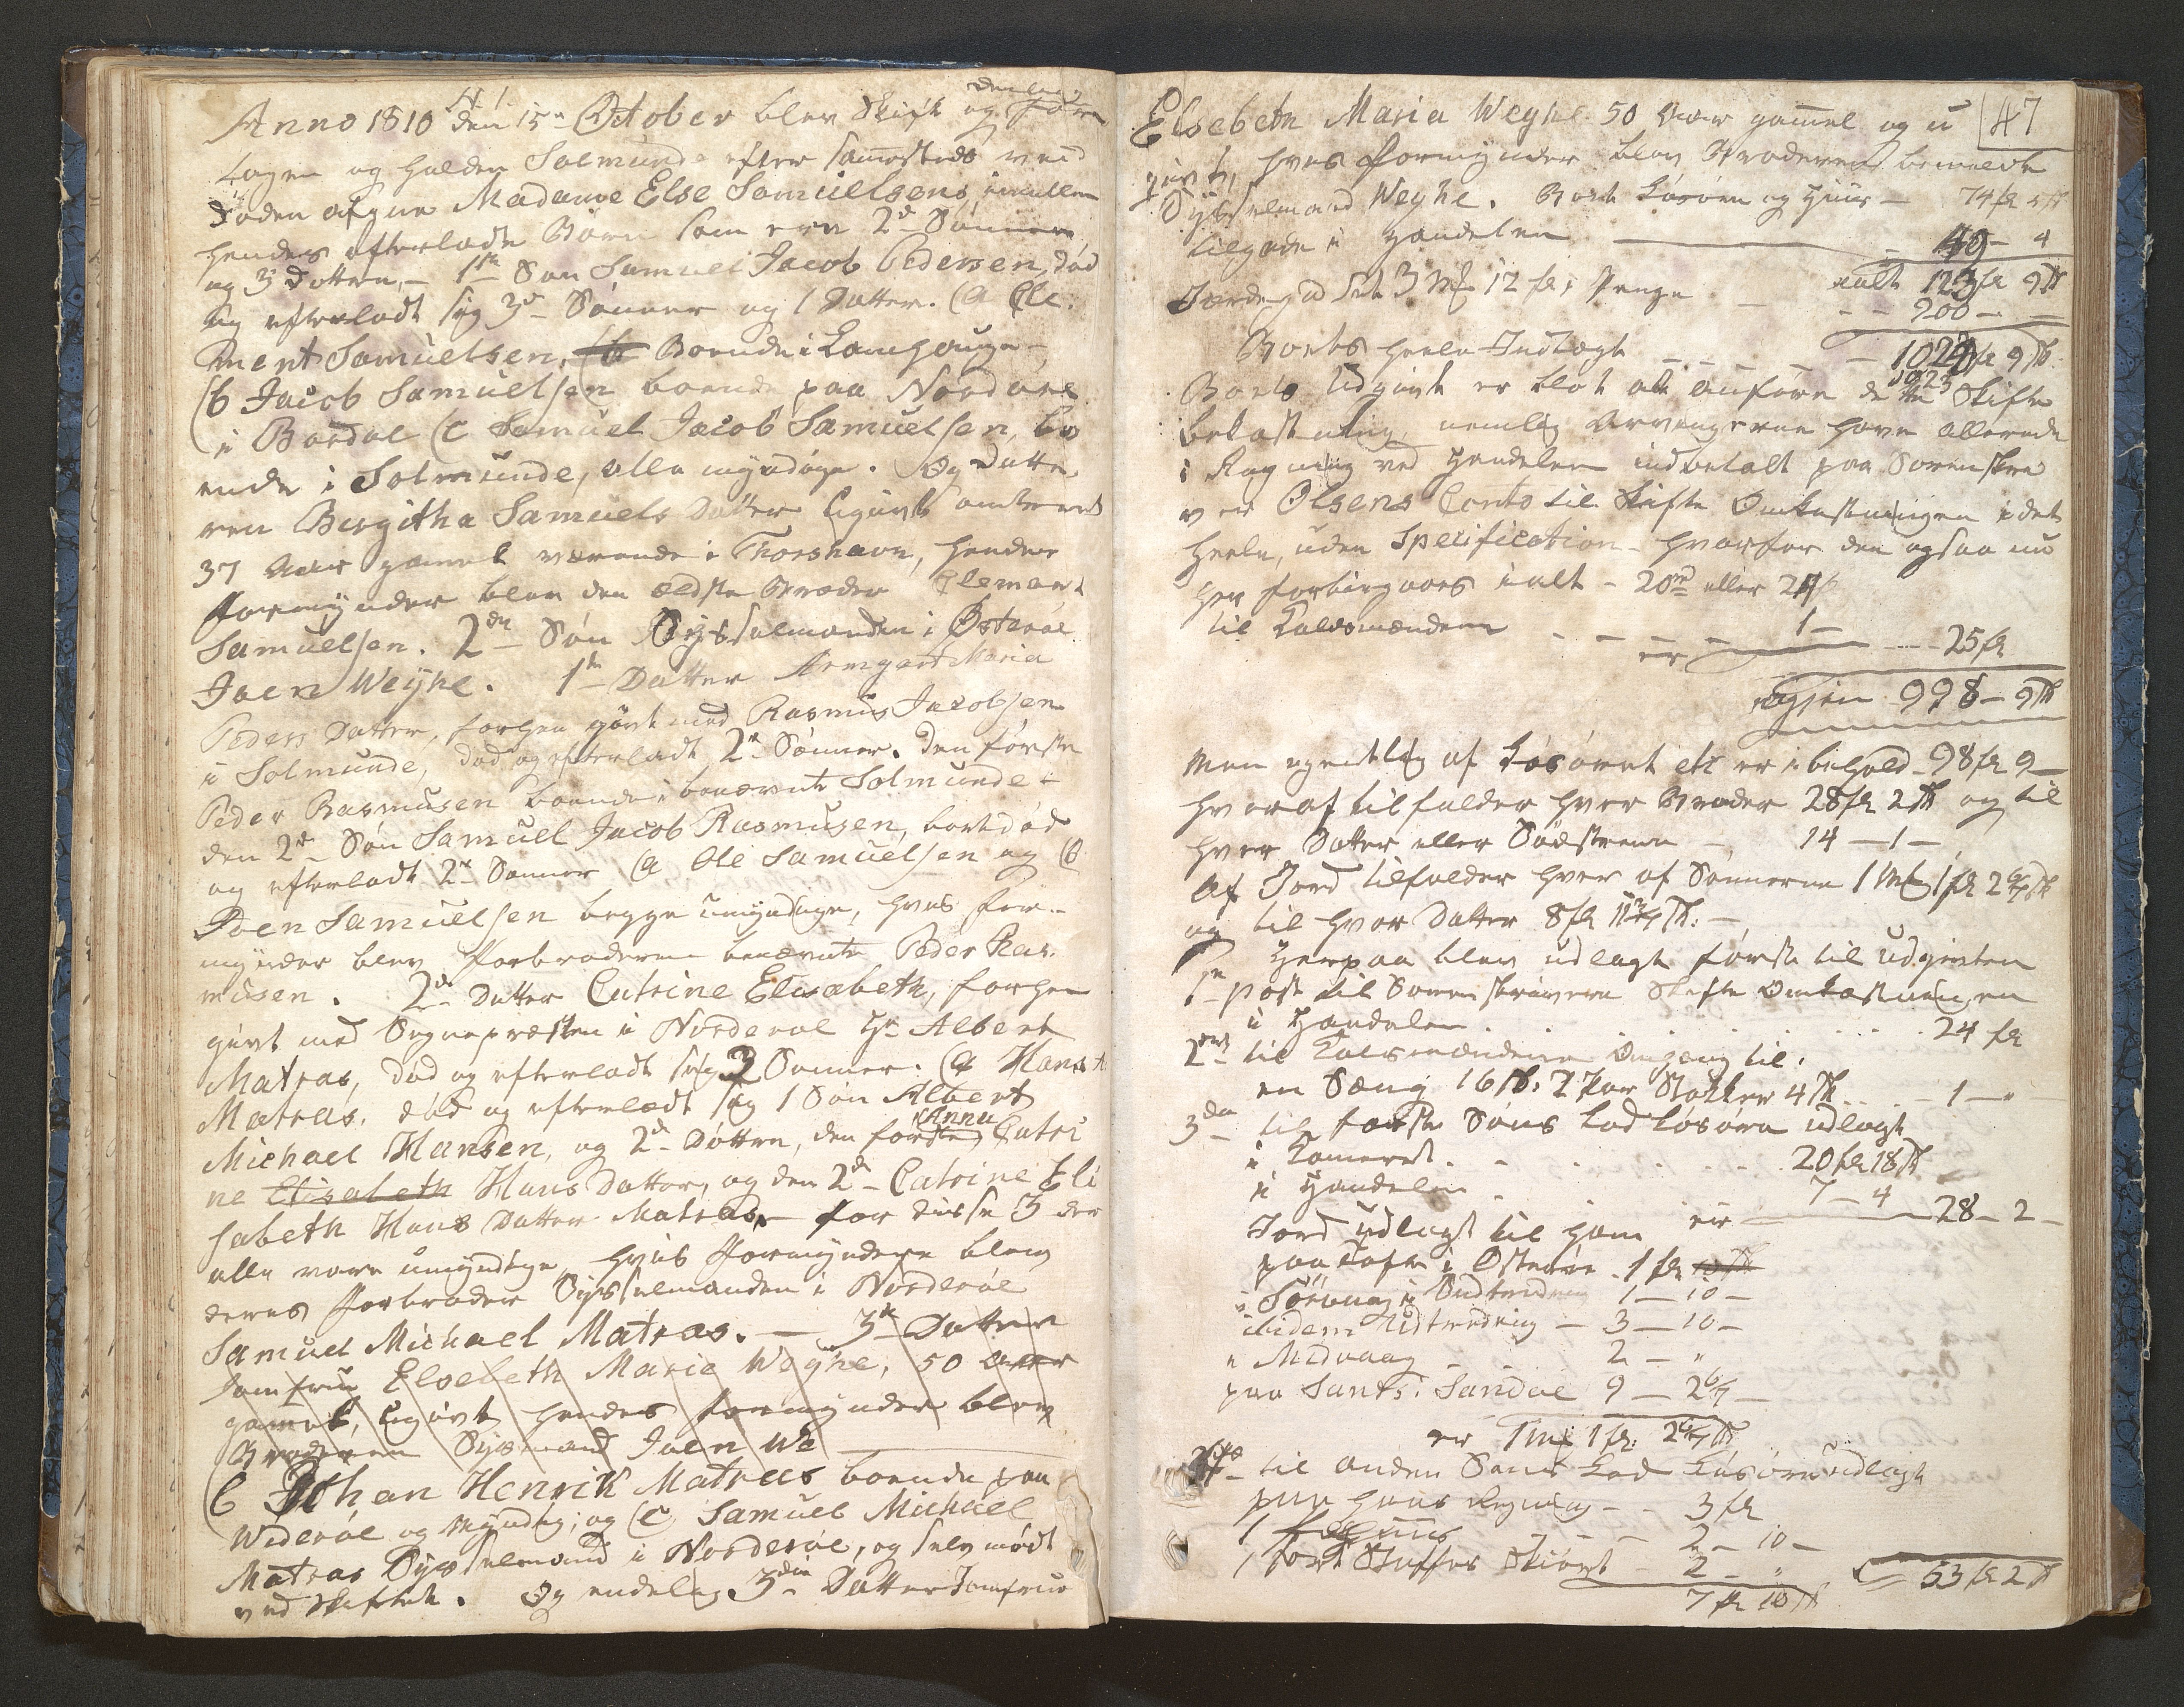 Anno 1810 den 15 October blev Skifte og deeling
tagen og holden Solmunde efter sammesteds ved
Døden afgne Madame Else Samuelsens, imellem
hendes efterladte Børn som ere 2de Sønner
og 3 Døttre, - 1ste Søn Samuel Jacob Pedersen, død
og efterladt sig 3de Sønner og 1 Datter. (a Cle-
ment Samuelsen, Boende i
(b Jacob Samuelsen boende paa Nordøre
i Bordøe (c Samuel Jacob Samuelsen, bo
ende i Solmunde, alle myndige. Og Datte
ren Birgitha Samuels Datter ugivt omtrent
37 Aar gammel værende i Thorshavn, hendes
Formynder blev den ældste Broder Clement
Samuelsen. 2den Søn Sysselmanden i Østerøe
Joen Weyhe. 1ste Datter Armgart Maria
Peders Datter, forhen givt med Rasmus Jacobsen
i Solmunde, død og efterladt 2de Sønner. Den første
Peder Rasmusen boende i benævnte Solmunde
den 2den Søn Samuel Jacob Rasmusen, bortdød
og efterladt 2de Sønner (a Ole Samuelsen og (b
Joen Samuelsen begge umyndige, hvis For-
mynder blev Farbroderen benævnte Peder Ras-
musen. 2den Datter Catrine Elisabeth, forhen
givt med Sognepræsten i Norderøe Hr Albert
Matras, død og efterladt sig 3 Sønner. (a Hans
Matras, død og efterladt sig 1 Søn Albert
Michael Hansen, og 2de Døttre, den første Anna Catri
ne Elisabeth Hans Datter, og den 2den Catrine Eli
sabeth Hans Datter Matras, - for disse 3 der
alle vare umyndige, hvis Formyndere blev
deres Farbroder Sysselmanden i Norderøe
Samuel Michael Matras. - 3die Datter
Jomfrue Elsebeth Marie Weyhe, 50 Aar
gammel, ugivt hendes Formynder blev
Broderen Sysmand Joen We
(b Johan Henrik Matras boende paa
Widerøe og Myndig; og (c Samuel Michael
Matras Sysselmand i Norderøe, og selv mødt
ved Skiftet. Og endelig 3die Datter Jomfrue
47
Elsebeth Maria Weyhe 50 Aar gammel og u
givt, hvis Formynder blev Broderen bemeldte
Sysselmand Weyhe. Boets Løsøre og Huus - 74 fl 5 sk
tilgode i Handelen - 49 - 4
ialt 123 fl 9 sk
Jordegods 3 Mk 12 fl, Penge - 900 -
Boets heele Indtægt - 1023 fl 9 sk
Boets Udgivt er blot at anføre 1023 Skifte
bekostning, nemlig Arvingerne have allerede
i Regning ved Handelen indbetalt paa Sorenskri
ver Olsens Conto til Skifte Omkostningen i det
heele, uden Specification - hvorfor den ogsaa nu
her forbigaaes ialt - 20 rd eller 24 fl
til Taxsmændene - 1 -
er - 25 fl
igjen 998 - 9 sk
Men egentlig af Løsøret etc er i behold - 98 fl 9 -
hvoraf tilfalder hver Broder 28 fl 2 sk og til
hver Datter eller Sødstrene - 14 - 1 -
Af Jord tilfalder hver af Sønnerne 1 Mk 1 fl 2 6/7 sk
og til hver Datter 8 fl 11 3/7 sk. -
Herpaa blev udlagt først til Udgivten
1ste Post til Sorenskriveren Skifte Omkostningen
i Handelen . . . . 24 fl
2den til Taxsmændene Omgang til.
en Seng 16 sk. 2 Par Støkker 4 sk . . . - 1 - "
3die til første Søns Lod Løsøre udlagt
i Cameret . . . 20 fl 18 sk
i Handelen . 7 - 4
er - 28 - 2 -
Jord udlagt til ham
paa Tofte i Østerøe . 1 fl
i Sørvaag i Sudtredning 1 - 10 -
ibidem Udtredning - 3 - 10 -
i Midvaag - . 2 - "
paa Sands i Sandøe 9 - 2 6/7 -
er 1 Mk 1 fl: 2 6/7 sk
4de til anden Søns Lod Løsøre udlagt
paa hans Regning - - 3 fl
1 - - 2 - 10 -
1 sort Stoffes Skiørt - 2 - "
7 fl 10 sk
53 fl 2 sk